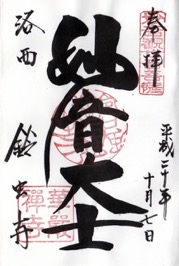 奉拝
平成二十年
十月七日
妙音大士
洛西
鈴虫寺
華厳
禅寺